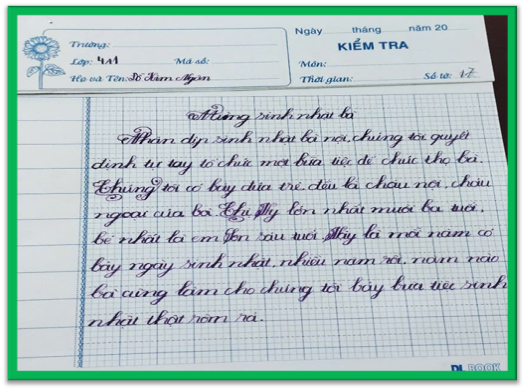 Ngày tháng năm 20
KIỂM TRA
Trường:
Lớp: 4A1 Mã số:
Họ và Tên: Đỗ Kim Ngân
Môn:
Thời gian: Số tờ: 17
Mừng sinh nhật bà
Nhân dịp sinh nhật bà nội, chúng tôi quyết
định tự tay tổ chức một bữa tiệc để chúc thọ bà.
Chúng tôi có bảy đứa trẻ, đều là cháu nội, cháu
ngoại của bà. Chị Vy lớn nhất mười ba tuổi,
bé nhất là em Sơn sáu tuổi. Vậy là mỗi năm có
bảy ngày sinh nhật, nhiều năm rồi, năm nào
bà cũng làm cho chúng tôi bảy bữa tiệc sinh
nhật thật rôm rả.
BOOK